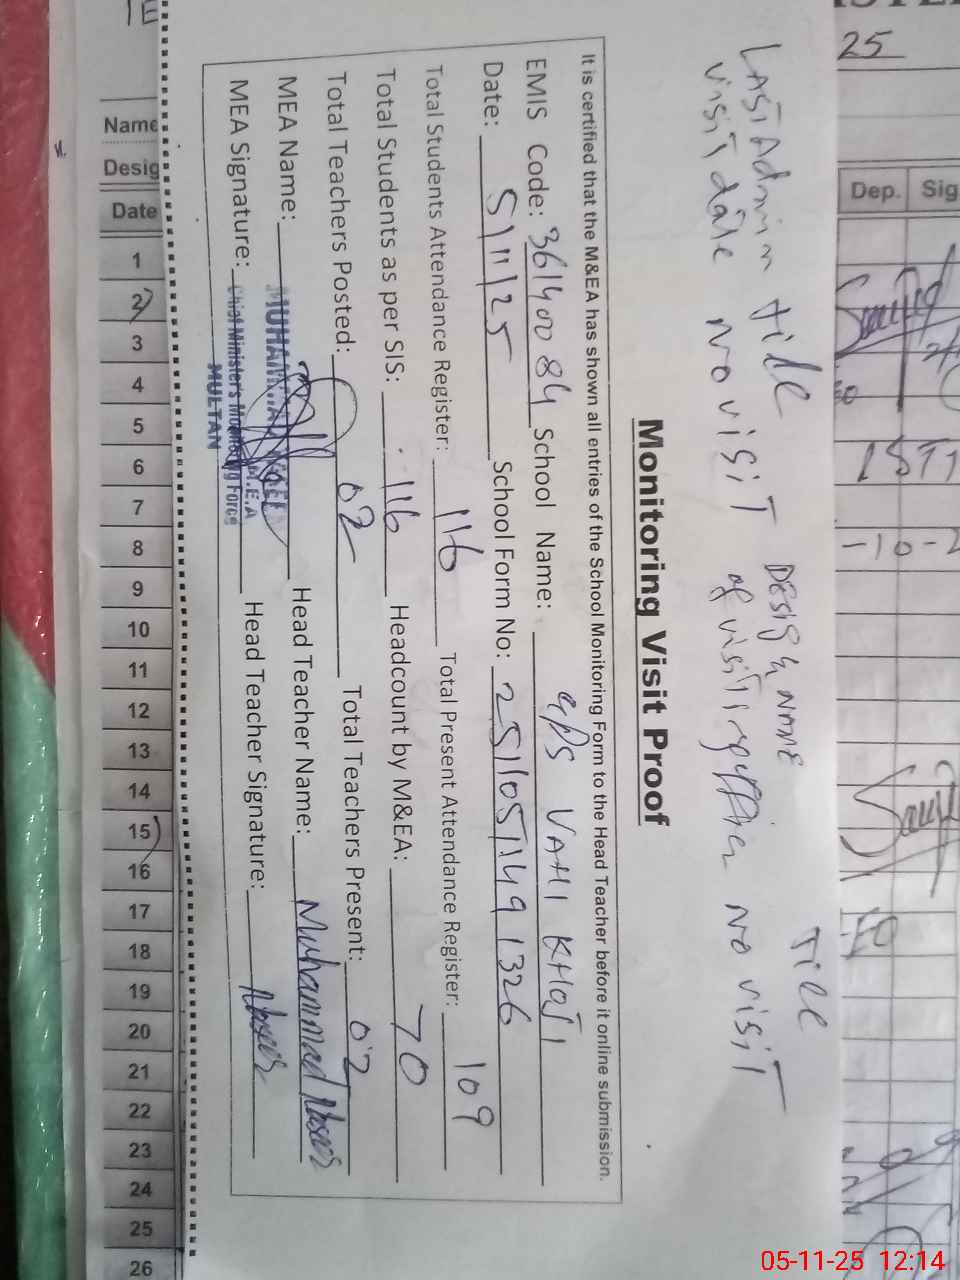 Last Admin till Design & Name Till
visit date no visit of visiting officer no visit
Monitoring Visit Proof
It is certified that the M&EA has shown all entries of the School Monitoring Form to the Head Teacher before it online submission.
EMIS Code: 36140084 School Name: GPS VAHI KHOJI
Date: 5/11/25 School Form No: 251105/149 1326
Total Students Attendance Register: 116 Total Present Attendance Register: 109
Total Students as per SIS: 116 Headcount by M&EA: 70
Total Teachers Posted: 02 Total Teachers Present: 02
MEA Name: MUHAMMAD Head Teacher Name: Muhammad
MEA Signature: Head Teacher Signature:
M.E.A
Chief Minister's Monitoring Force
MULTAN
Name
Desig
Date
1
2
3
4
5
6
7
8
9
10
11
12
13
14
15
16
17
18
19
20
21
22
23
24
25
26
25
Dep. Sig
-10-2
05-11-25 12:14